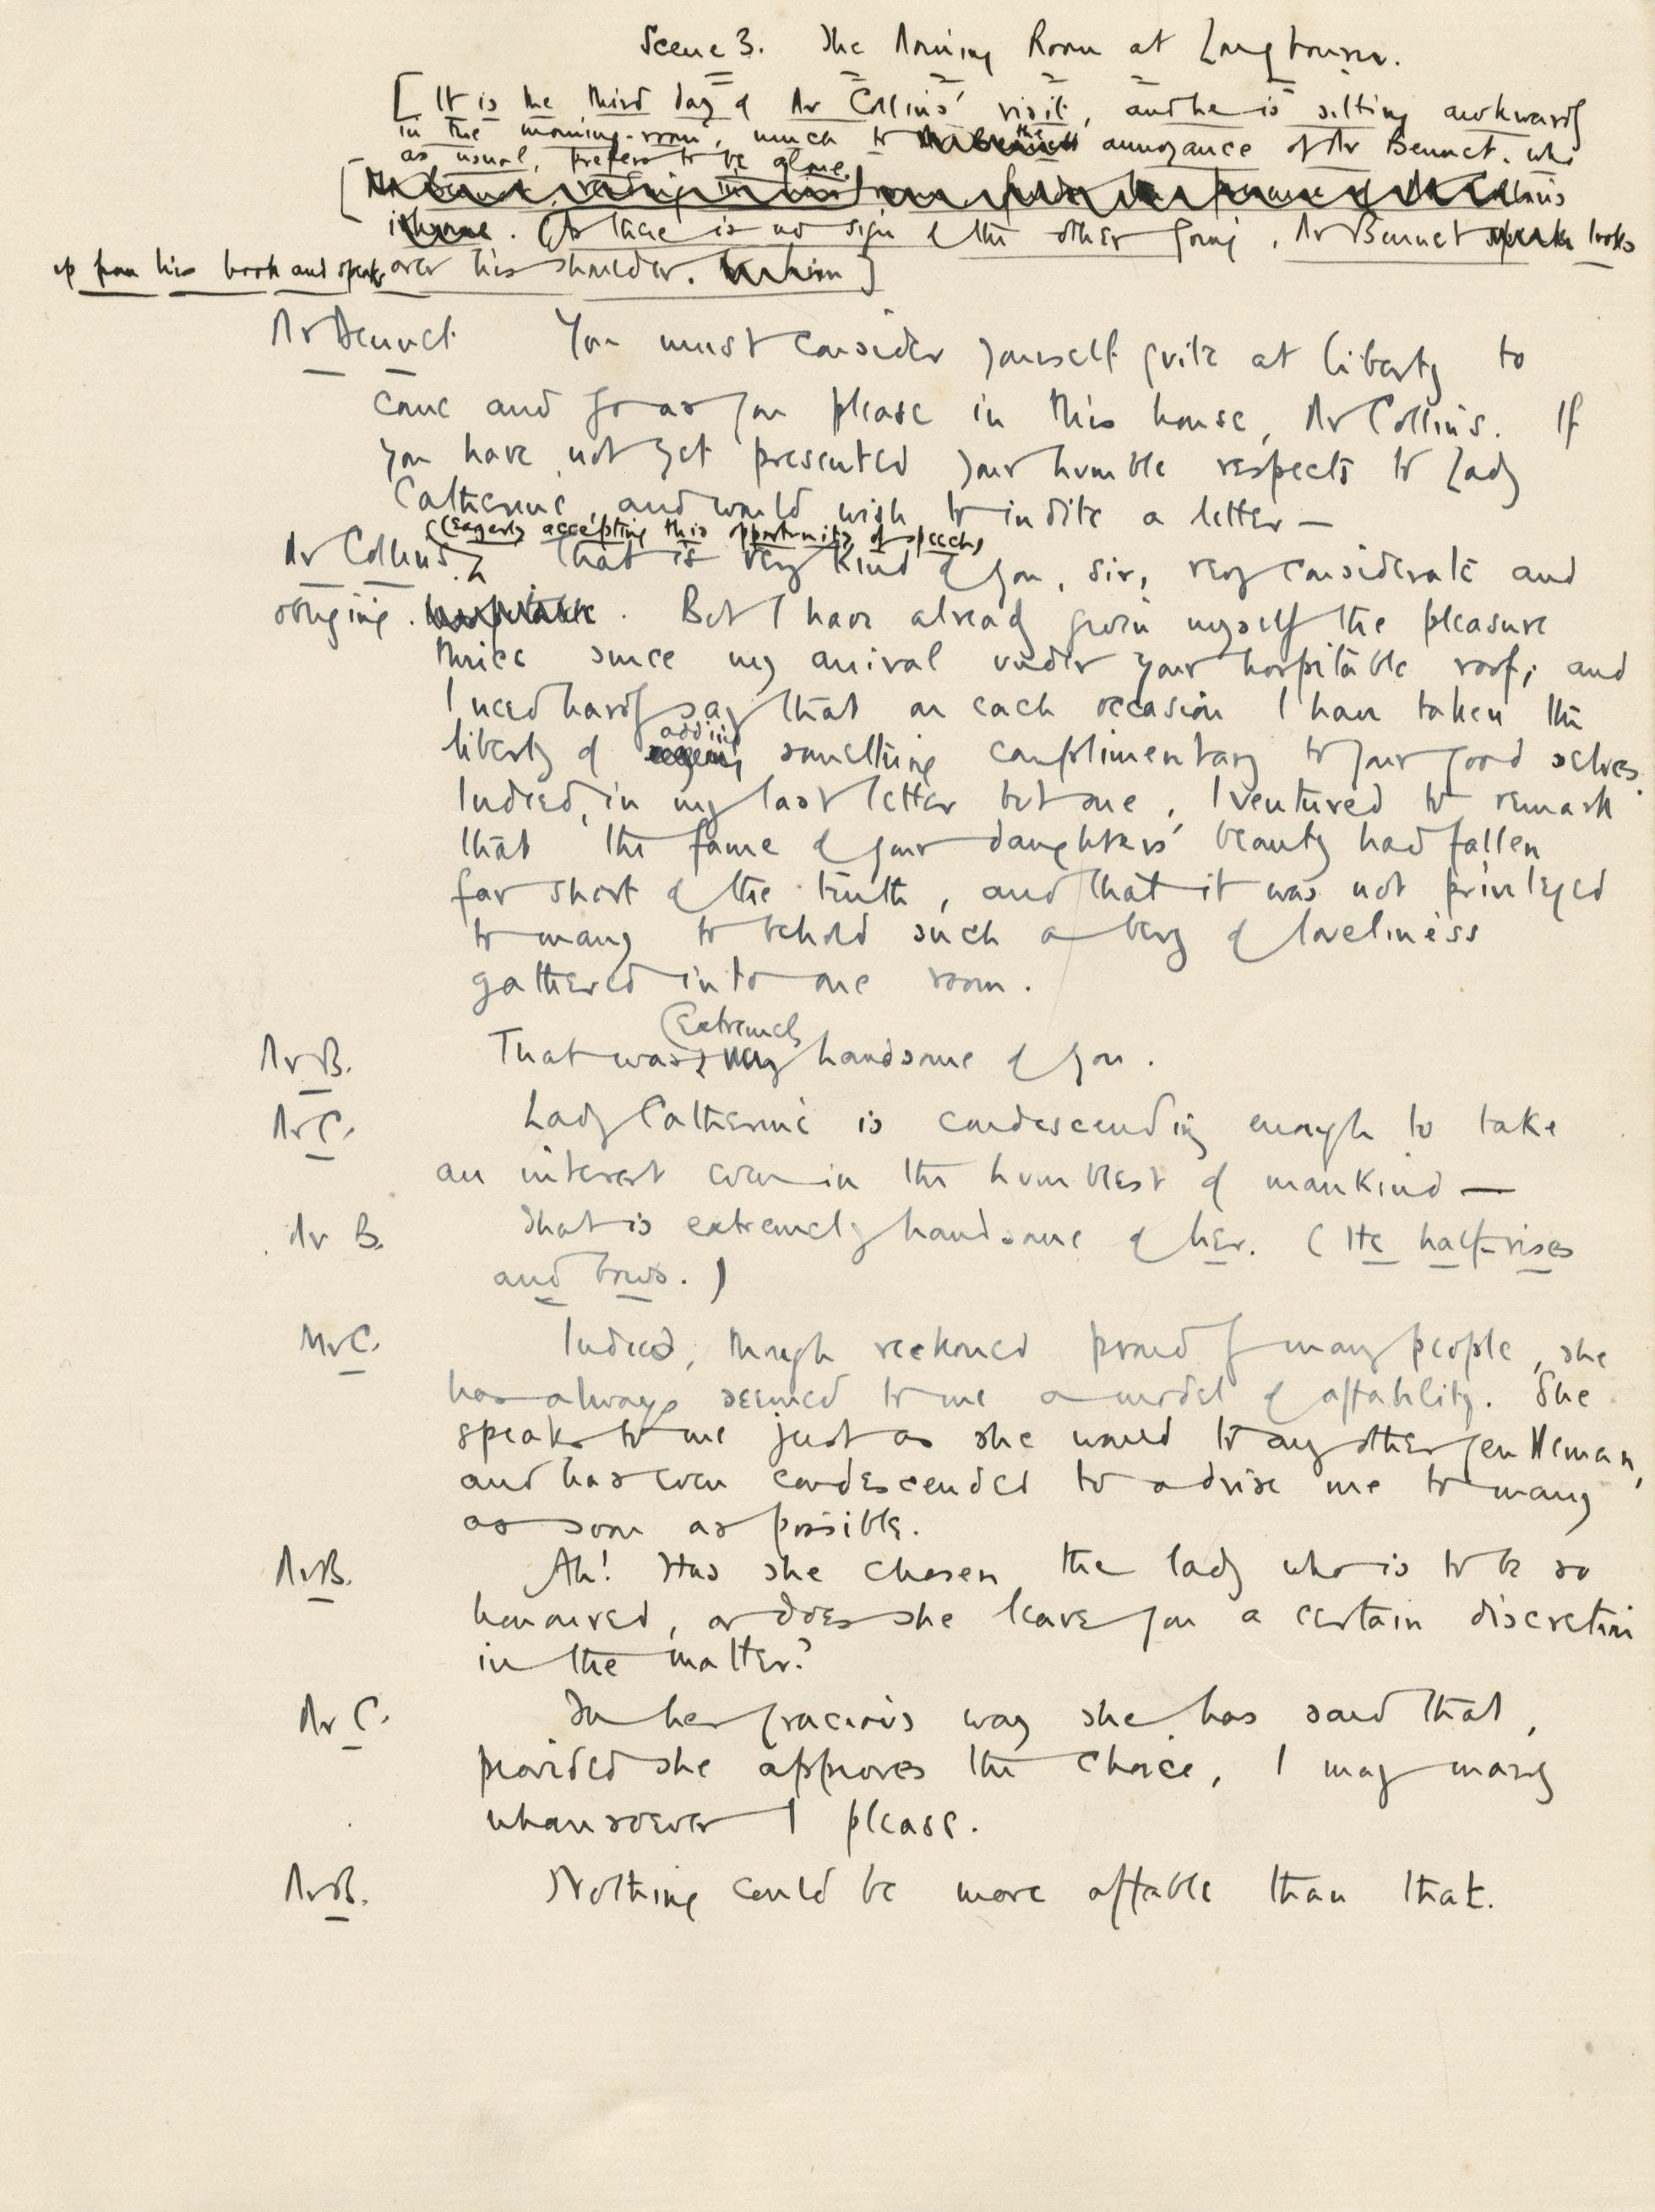 Scene 3. The Morning Room at Longbourn.
[It is the third day of Mr Collins' visit, and he is sitting awkwardly
in the morning-room, much to the annoyance of Mr Bennet. who
as usual, prefers to be alone.
As there is no sign of the other going, Mr Bennet looks
up from his book and speaks over his shoulder.]
Mr Bennet You must consider yourself quite at liberty to
come and go as you please in this house, Mr Collins. If
you have not yet presented your humble respects to Lady
Catherine, and would wish to indite a letter —
(Eagerly accepting this opportunity of speech)
Mr Collins. That is very kind of you, sir, very considerate and
obliging. hospitable. But I have already given myself the pleasure
thrice since my arrival under your hospitable roof; and
I need hardly say that on each occasion I have taken the
adding
liberty of something complimentary to your good selves.
Indeed, in my last letter but one, I ventured to remark
that the fame of your daughters' beauty had fallen
far short of the truth, and that it was not privileged
to many to behold such a bevy of loveliness
gathered into one room.
(Extremely
Mr B. That was very handsome of you.
Mr C. Lady Catherine is condescending enough to take
an interest even in the humblest of mankind —
Mr B. That is extremely handsome of her. (He half-rises
and bows.)
Mr C. Indeed, though reckoned proud by many people, she
has always seemed to me a model of affability. She
speaks to me just as she would to any other gentleman,
and has even condescended to advise me to marry
as soon as possible.
Mr B. Ah! Has she chosen the lady who is to be so
honoured, or does she leave you a certain discretion
in the matter?
Mr C. In her gracious way she has said that,
provided she approves the choice, I may marry
whomsoever I please.
Mr B. Nothing could be more affable than that.